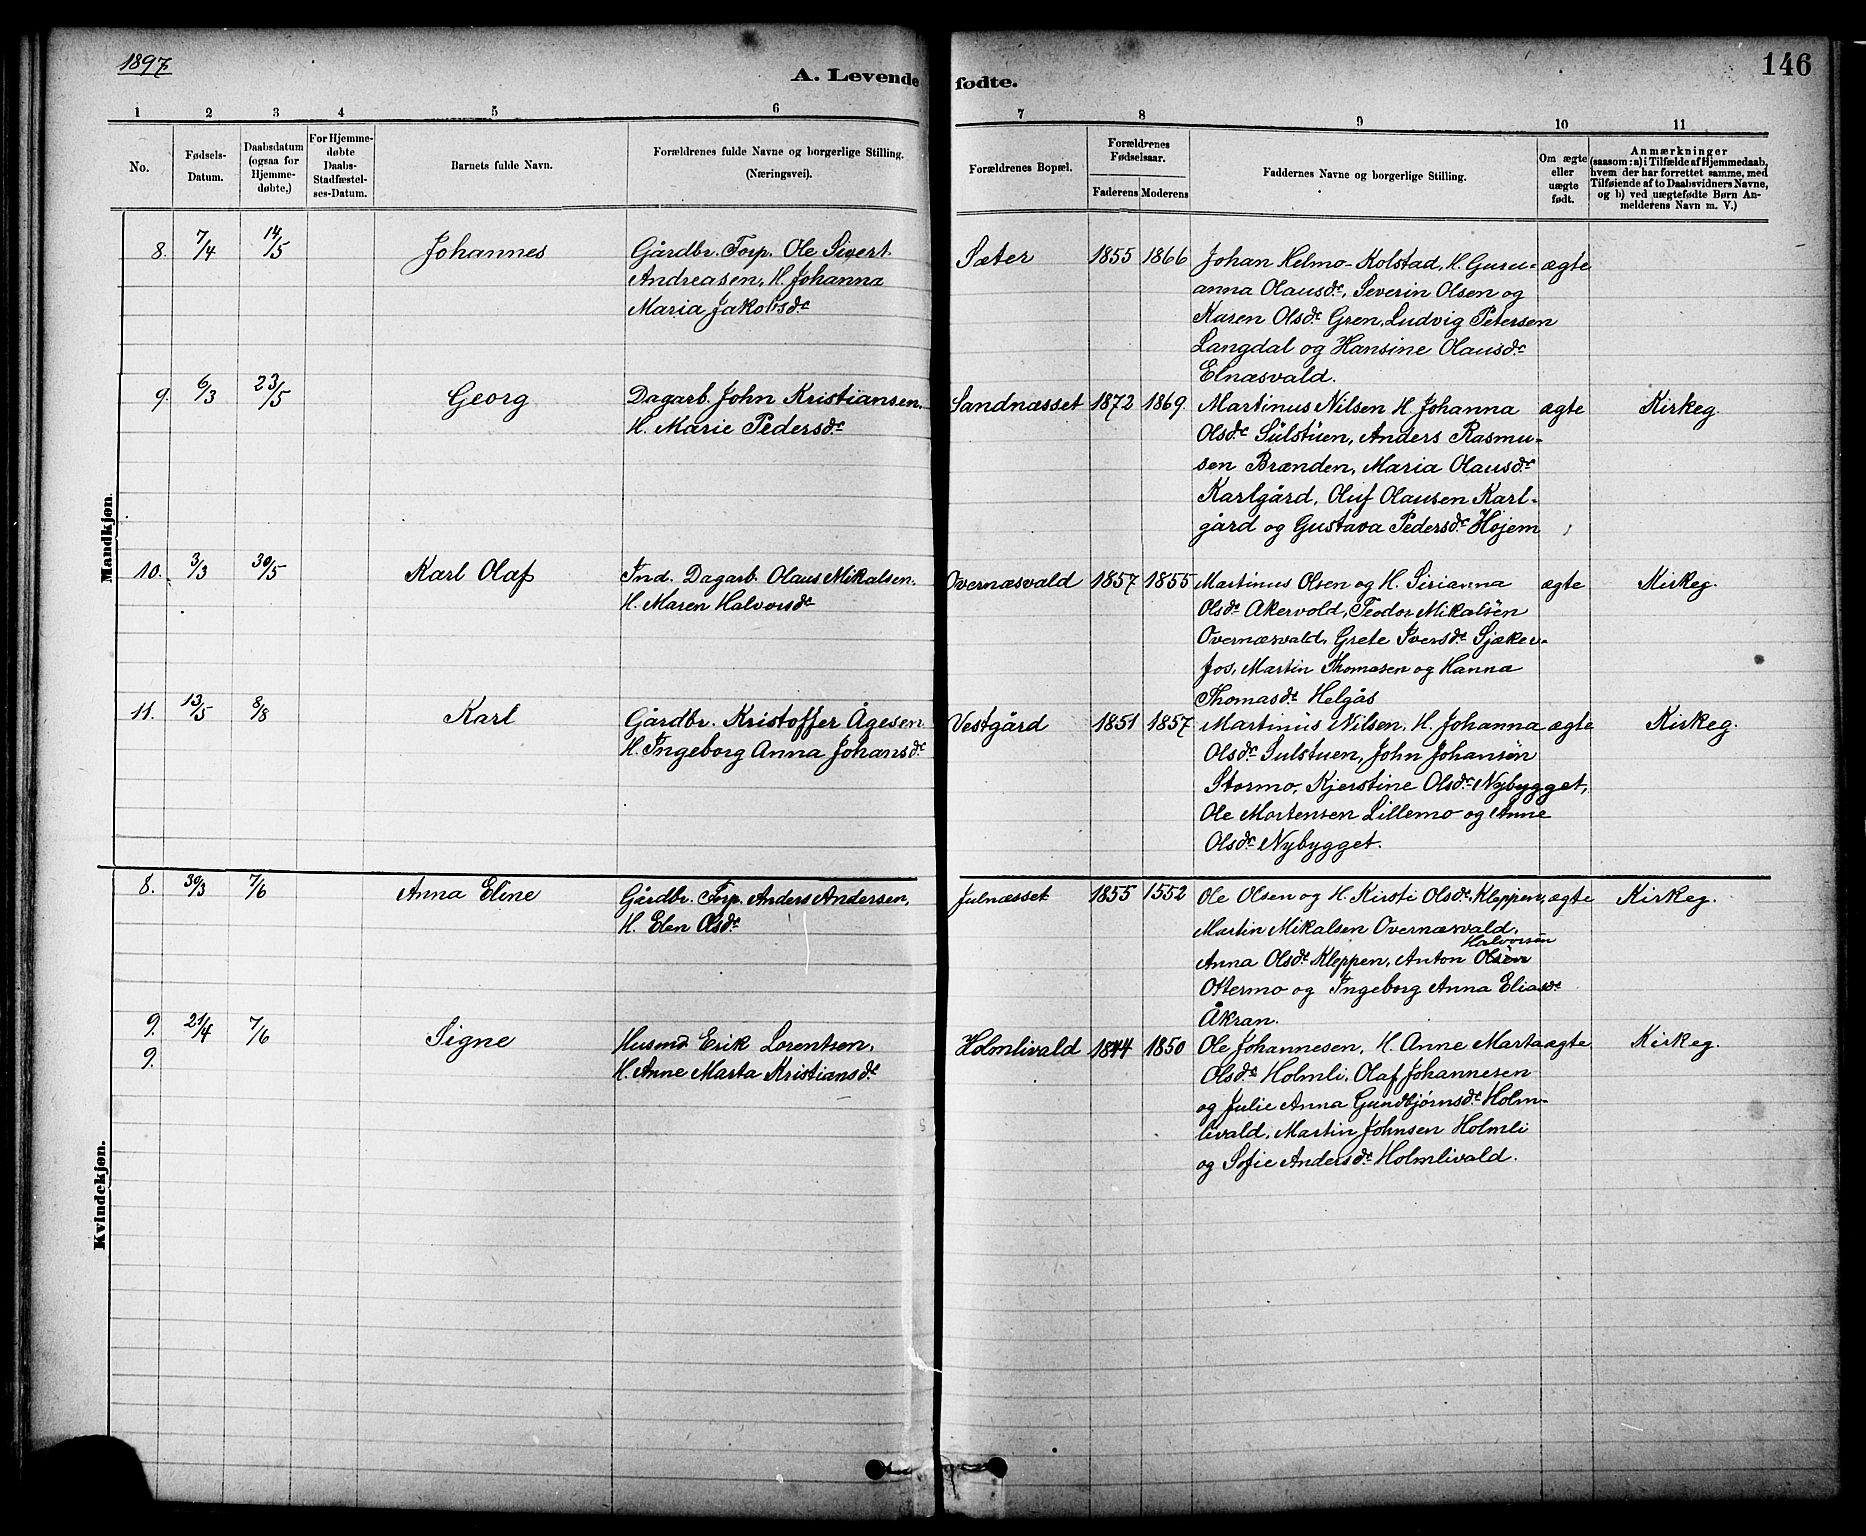 1897
A. Levende fødte.
146
1 2 3 4 5 6 7 8 9 10 11
No.
Fødsels-
Datum.
Daabsdatum
(ogsaa for
Hjemme-
døbte,)
For Hjemme-
døbte
Daabs-
Stadfæstel-
ses-Datum.
Barnets fulde Navn.
Forældrenes fulde Navne og borgerlige Stilling.
(Næringsvei).
Forældrenes Bopæl.
Forældrenes
Fødselsaar.
Faderens Moderens
Faddernes Navne og borgerlige Stilling.
Om ægte
eller
uægte
født.
Anmærkninger
(saasom: a) i Tilfælde af Hjemmedaab,
hvem der har forrettet samme, med
Tilføiende af to Daabsvidners Navne,
og b) ved uægtefødte Børn An-
melderens Navn m. V.)
Mandkjøn.
8. 7/4 14/5 Johannes
Gårdbr. Torp. Ole Sivert
Andreasen, H. Johanna
Maria Jakobsdr
Sæter 1855 1866
Johan Helmo-Kolstad, H. Guru-
anna Olausdr, Severin Olsen og
Karen Olsdr Gren, Ludvig Petersen
Langdal og Hansine Olausdr
Elnæsvald.
ægte
9. 6/3 23/5 Georg
Dagarb. John Kristiansen.
H. Marie Pedersdr
Sandnæsset 1872 1869
Martinus Nilsen H. Johanna
Olsdr Sulstuen, Anders Rasmu-
sen Brænden, Maria Olausdr
Karlgård, Oluf Olausen Karl-
gård og Gustava Pedersdr Højem
ægte Kirkeg.
10. 3/3 30/5 Karl Olaf
Ind. Dagarb. Olaus Mikalsen.
H. Maren Halvorsdr
Overnæsvald 1857 1855
Martinus Olsen og H. Sirianna
Olsdr Akervold, Teodor Mikalsen
Overnæsvald, Grete Iversdr Sjæker-
fos, Martin Thomasen og Hanna
Thomasdr Helgås
ægte Kirkeg.
11. 13/5 8/8 Karl
Gårdbr. Kristoffer Ågesen
H. Ingeborg Anna Johansdr
Vestgård 1851 1857
Martinus Nilsen, H. Johanna
Olsdr Sulstuen, John Johansen
Stormo, Kjerstine Olsdr Nybygget,
Ole Mortensen Lillemo og Anne
Olsdr Nybygget.
ægte Kirkeg.
Kvindekjøn.
8. 30/3 7/6 Anna Eline
Gårdbr. Torp. Anders Andersen,
H. Elen Olsdr
Julnæsset 1855 1552
Ole Olsen og H. Kirsti Olsdr Kleppen,
Martin Mikalsen Overnæsvald,
Halvorsen
Anna Olsdr Kleppen, Anton Olsen
Ottermo og Ingeborg Anna Eliasdr
Åkran.
ægte Kirkeg.
9. 21/4 7/6 Signe
9.
Husmd Erik Lorentsen,
H. Anne Marta Kristiansdr
Holmlivald 1844 1850
Ole Johannesen, H. Anne Marta
Olsdr Holmli, Olaf Johannesen
og Julie Anna Gundbjørnsdr Holm-
livald, Martin Johnsen Holmli
og Sofie Andersdr Holmlivald.
ægte Kirkeg.